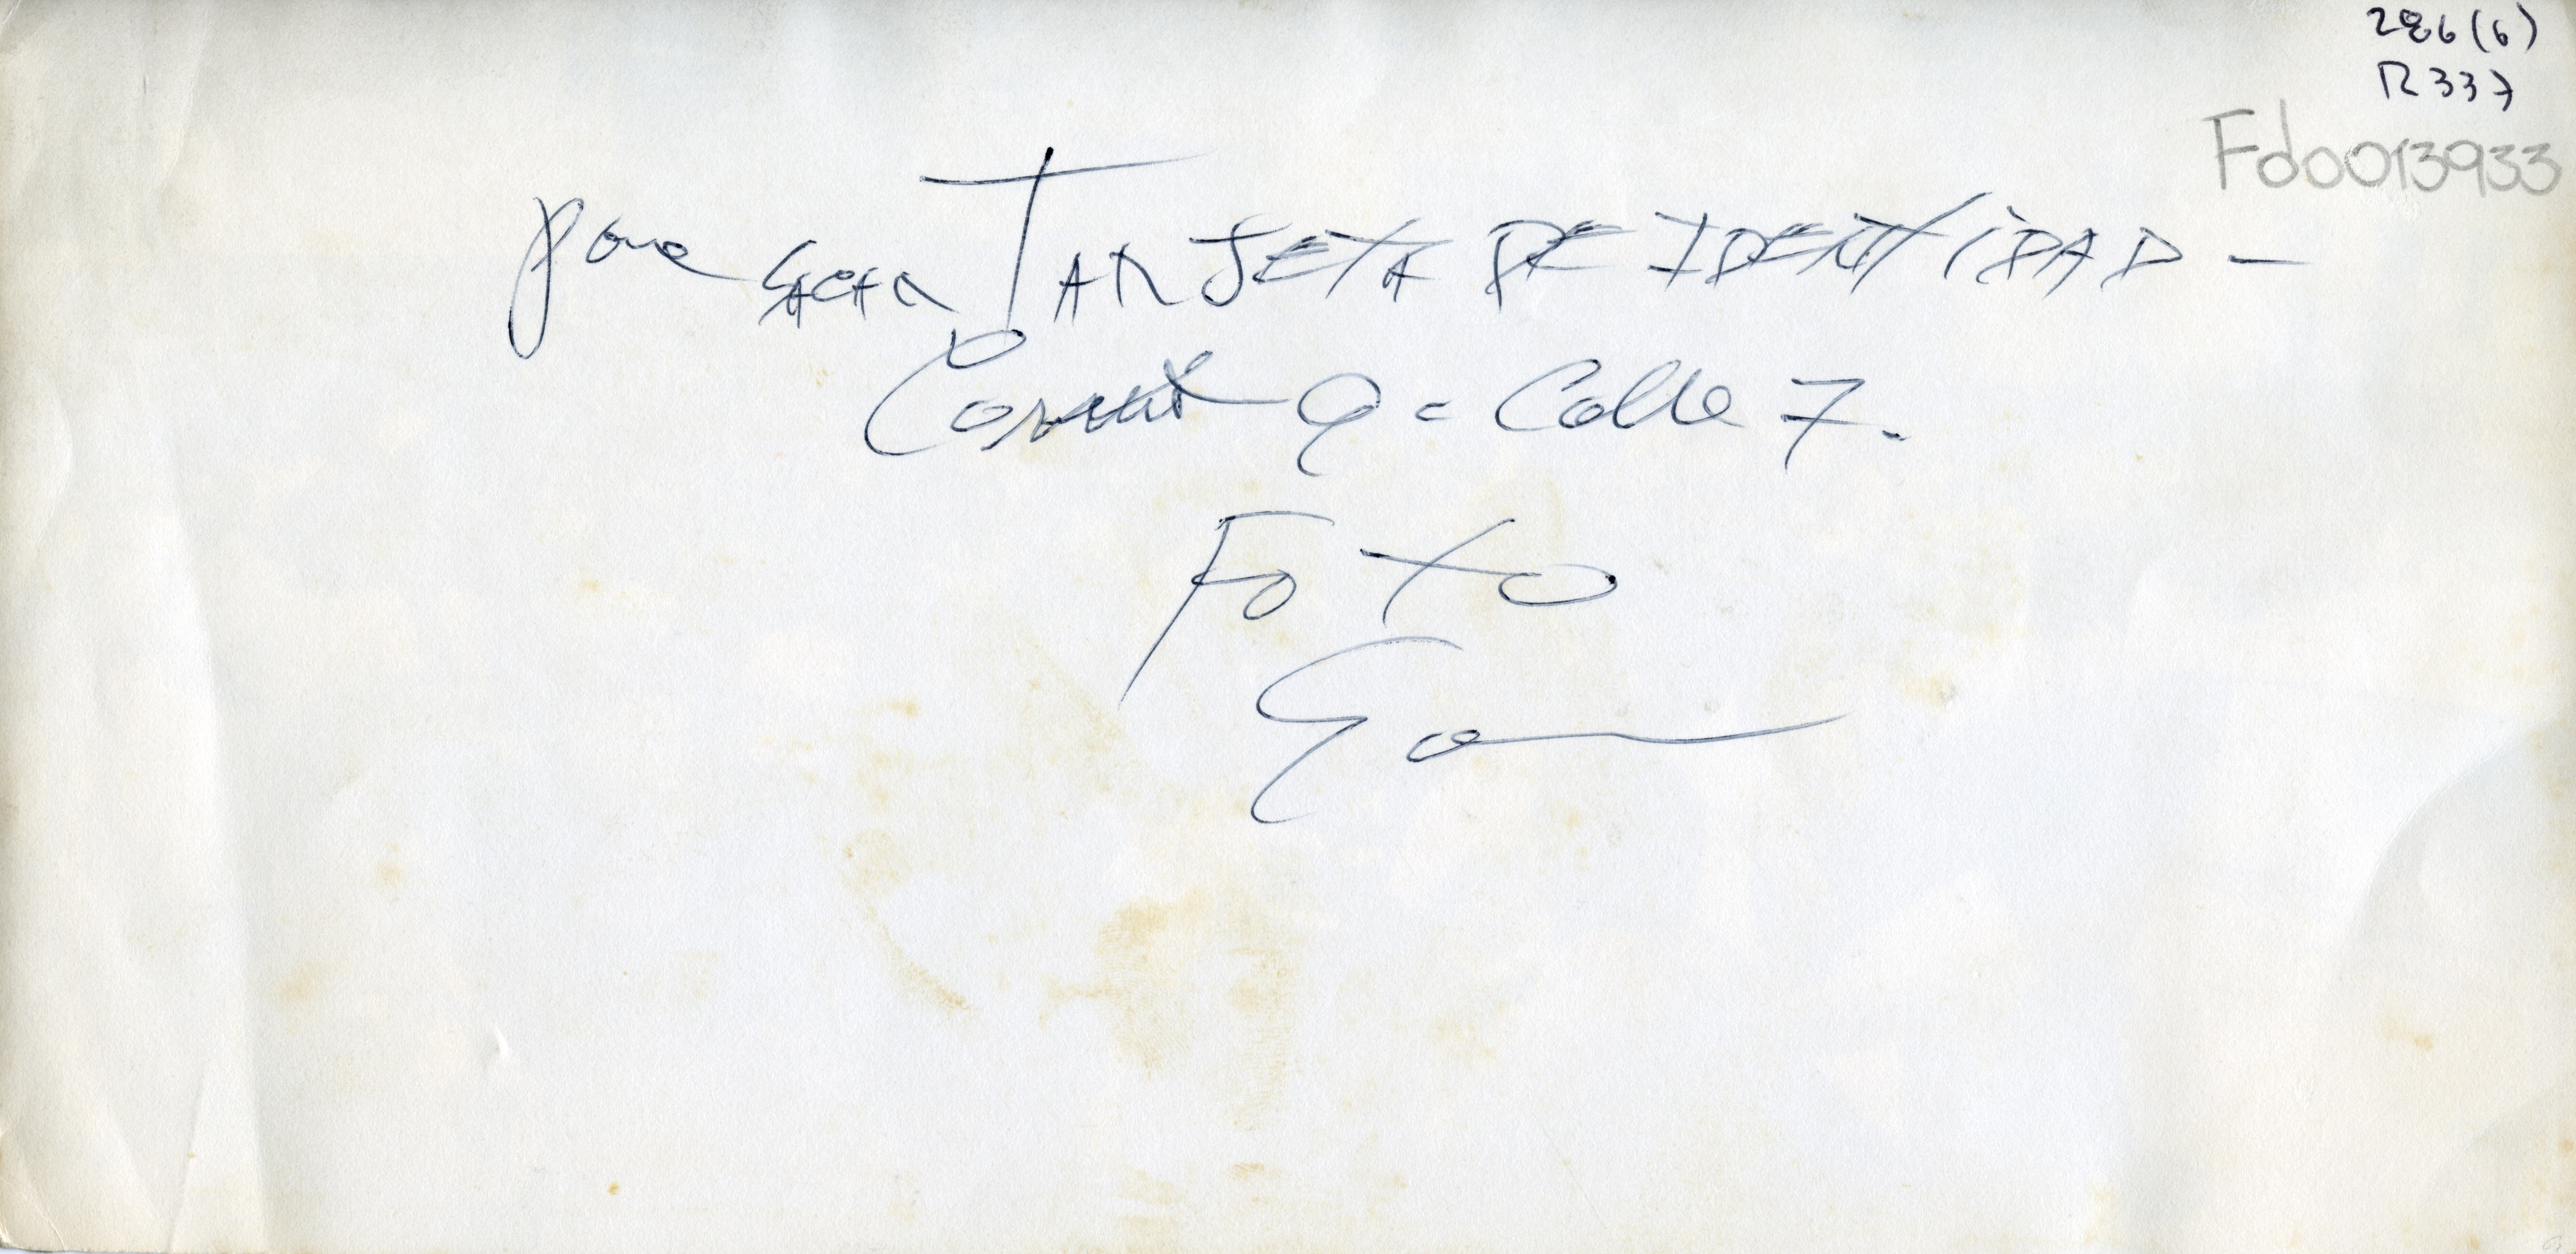 286(6)
R337
Fdo013933
para SACAR TARJETA DE IDENTIDAD -
9 = Calle 7.
Foto